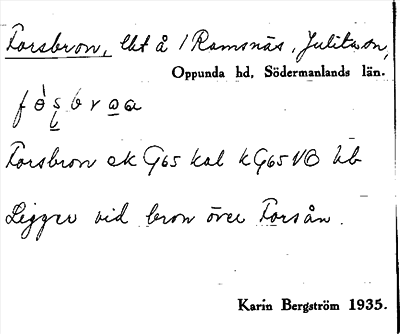 Forsbron, lht å 1 Ramsnäs, Julita sn,
Oppunda hd, Södermanlands län.
Forsbron ek G65 kal k G65 VO hb
Ligger vid bron över Forsån.
Karin Bergström 1935.